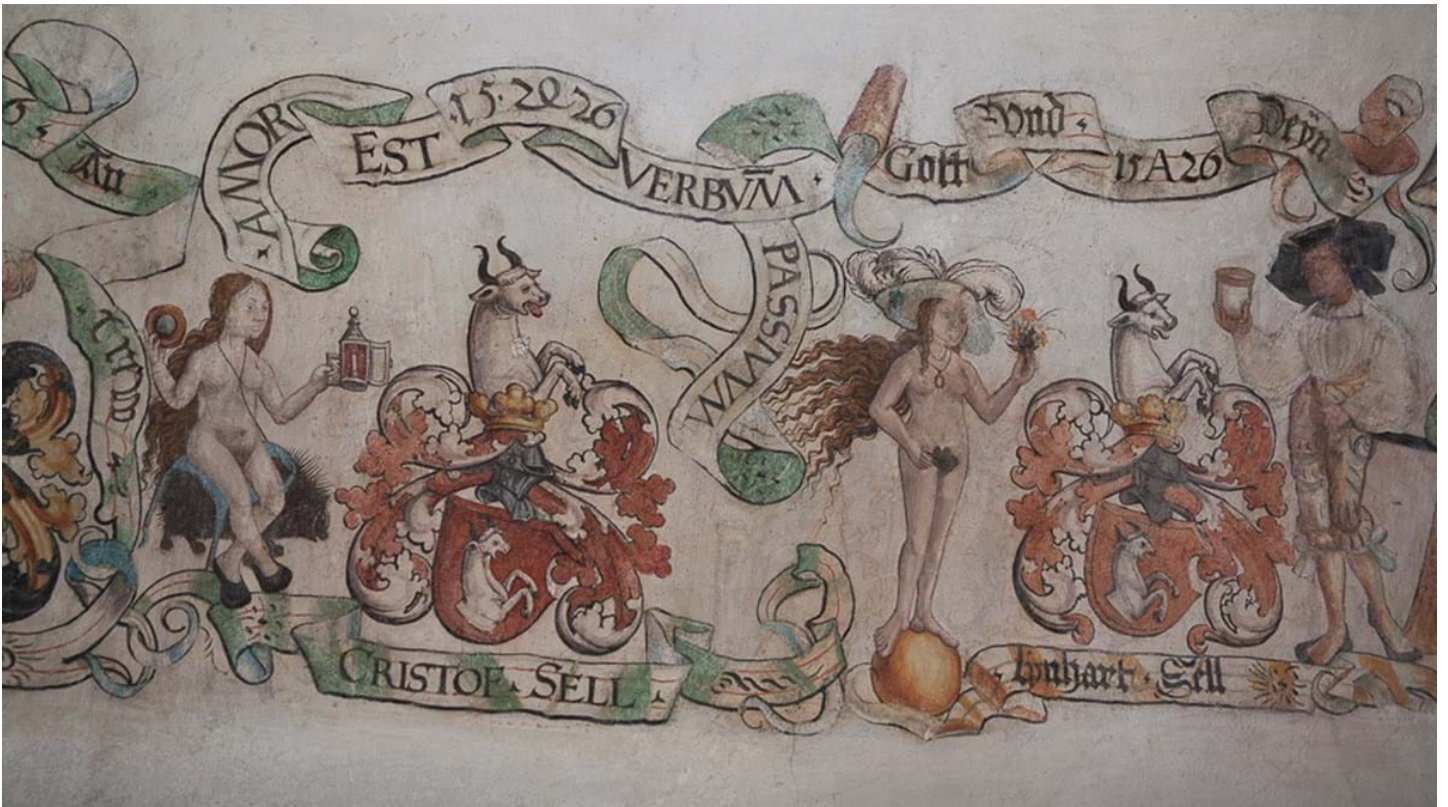 An
AMOR
EST
·15·2Q26
VERBVM̄ ·
PASSIVVM
Gott
Vnd ·
15A26
Deÿn
S
CRISTOF · SELL ·
· lynhart · Sell